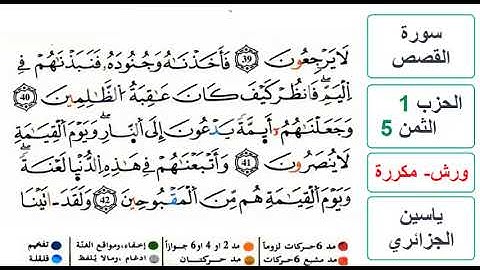 لَا يَرْجِعُونَ 39 فَأَخَذْنَٰهُ وَجُنُودَهُۥ فَنَبَذْنَٰهُمْ فِے
اِ۬لْيَمِّ فَانظُرْ كَيْفَ كَانَ عَٰقِبَةُ اُ۬لظَّٰلِمِينَ 40
وَجَعَلْنَٰهُمُۥٓ أَيِمَّةٗ يَدْعُونَ إِلَى اَ۬لنّ۪ارِ وَيَوْمَ اَ۬لْقِيَٰمَةِ
لَا يُنصَرُونَ 41 وَأَتْبَعْنَٰهُمْ فِے هَٰذِهِ اِ۬لدُّنْي۪ا لَعْنَةٗ
وَيَوْمَ اَ۬لْقِيَٰمَةِ هُم مِّنَ اَ۬لْمَقْبُوحِينَ 42 وَلَقَدَ اٰتَيْنَا
سورة
القصص
الحزب 1
الثمن 5
ورش- مكررة
ياسين
الجزائري
مد 6 حركات لزوماً
مد 2 او 4 او 6 جوازاً
إخفاء، ومواقع الغنة
تفخيم
مد مشبع 6 حركات
مد حركتان
ادغام، ومالا يُلفظ
قلقلة